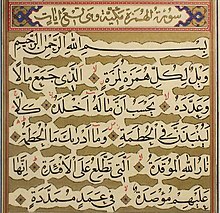 سورة الهمزة مكية وهي تسع آيات
بِسْمِ اللهِ الرَّحْمٰنِ الرَّحِيمِ
وَيْلٌ لِكُلِّ هُمَزَةٍ لُمَزَةٍ اَلَّذِي جَمَعَ مَالًا
وَعَدَّدَهُ يَحْسَبُ اَنَّ مَالَهُ اَخْلَدَهُ كَلَّا
لَيُنْبَذَنَّ فِي الْحُطَمَةِ وَمَا اَدْرٰيكَ مَا الْحُطَمَةُ
نَارُ اللهِ الْمُوقَدَةُ اَلَّتِي تَطَّلِعُ عَلَى الْاَفْئِدَةِ اِنَّهَا
عَلَيْهِمْ مُؤْصَدَةٌ فِي عَمَدٍ مُمَدَّدَةٍ